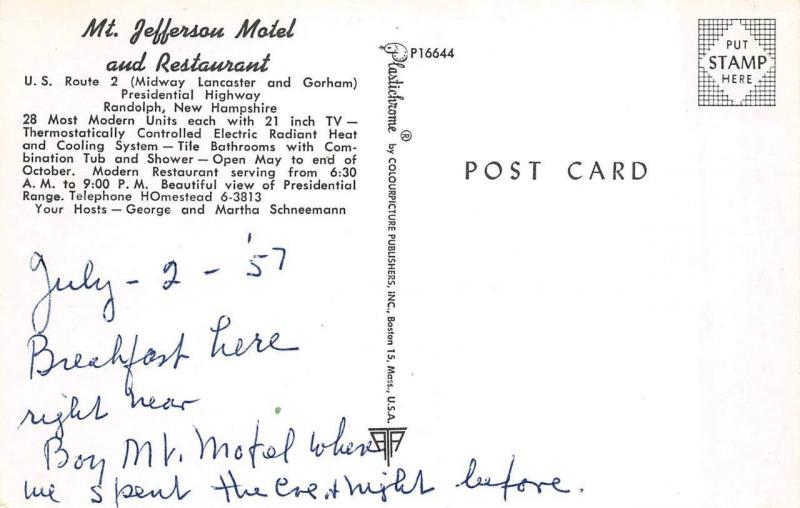 Mt. Jefferson Motel
and Restaurant
U. S. Route 2 (Midway Lancaster and Gorham)
Presidential Highway
Randolph, New Hampshire
28 Most Modern Units each with 21 inch TV —
Thermostatically Controlled Electric Radiant Heat
and Cooling System — Tile Bathrooms with Com-
bination Tub and Shower — Open May to end of
October. Modern Restaurant serving from 6:30
A. M. to 9:00 P. M. Beautiful view of Presidential
Range. Telephone HOmestead 6-3813
Your Hosts — George and Martha Schneemann
July - 2 - '57
Breakfast here
right near
Boy Mt. Motel where
we spent the eve. + night before.
Plastichrome ® by COLOURPICTURE PUBLISHERS, INC., Boston 15, Mass., U.S.A.
P16644
POST CARD
PUT
STAMP
HERE